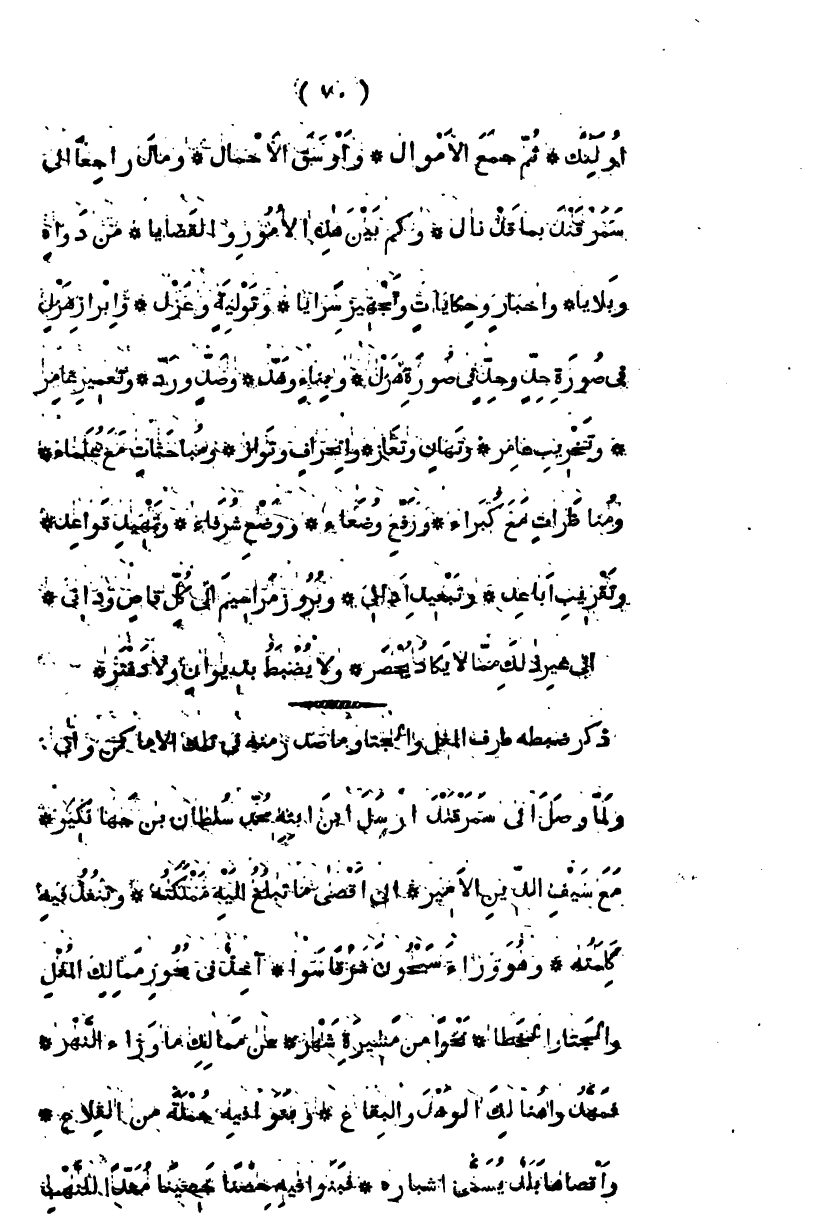 ( ٧٠ )
أُولَئِكَ * ثُمَّ جَمَعَ الأَمْوَالَ * وَأَوْسَقَ الأَحْمَال * وَمَالَ رَاجِعًا الى
سَمَرْقَنْدَ بِمَا قَدْ نال * وَكَم بَيْنَ هٰذِهِ الأُمُورِ والقَضَايا * مَنْ دَوَاهٍ
وبَلايا * واخبَارٍ وحِكَايَاتٍ وَتَجْهِيزِ سَرَايَا * وَتَوْلِيَةٍ وعَزْلٍ * وَاِبْرازِ هَزْلٍ
فى صُورَةِ جِدٍّ وجِدٍّ فى صُورَةِ هَزْلٍ * وَبِنَاءٍ وهَدٍّ * وصَدٍّ ورَدٍّ * وتَعْمِيرِ غامِرٍ
* وتَخْرِيبِ عامِر * وتَهَانٍ وتَعَازٍ * وانْحِرَافٍ وتَوَازٍ * ومُباحَثَاتٍ مَعَ عُلَمَاء *
ومُناظَرَاتٍ مَعَ كُبَرَاء * ورَفْعِ وُضَعَاء * ووَضْعِ شُرَفَاء * وتَمْهِيدِ قَوَاعِد *
وتَقْرِيبِ أَبَاعِد * وتَبْعِيدِ أَدَانِى * وبُرُوزِ مَرَاسِيمَ الَى كُلِّ قاصٍ ودَانى *
الى غيرِ ذلكَ مِمّا لا يَكَادُ يُحْصَر * ولا يُضْبَطُ بِدِيوَانٍ ولا دَفْتَر *
ذكر ضبطه طرف المغل والجتا وما صدر منه فى تلك الاماكن وأتى
وَلَمَّا وصَلَ اى سَمَرْقَنْدَ أرْسَلَ ابنَ ابنِهِ مُحَمّد سُلْطانَ بن جَهانكير *
مَعَ سَيْفِ الدّينِ الأَمير * الى أَقْصَى ما تَبْلُغُ اليْهِ مَمْلَكَتُهُ * وتَنْفُذُ فيهِ
كَلِمَتُه * وهُوَ وَرَاءَ سَيْحُونَ شَرْقًا سَوَا * آخِذًا فى نُحُورِ مَمَالِكِ المُغْلِ
والجتا والخطا * نَحْوًا من مَسِيرَةِ شَهْرٍ * عن مَمالِكِ ما وَرَاء النَّهْر *
فمَهَّدُوا هُنالِكَ الوَهْدَ والبِقَاع * وبَنَوا فيهِ جُمْلَةً من القِلاع *
وأَقْصاها بَلَدٌ يُسَمَّى اشباره * فبَنَوا فيهِ حِصْنًا حَصِينًا مُعَدًّا للنَّهْبِ